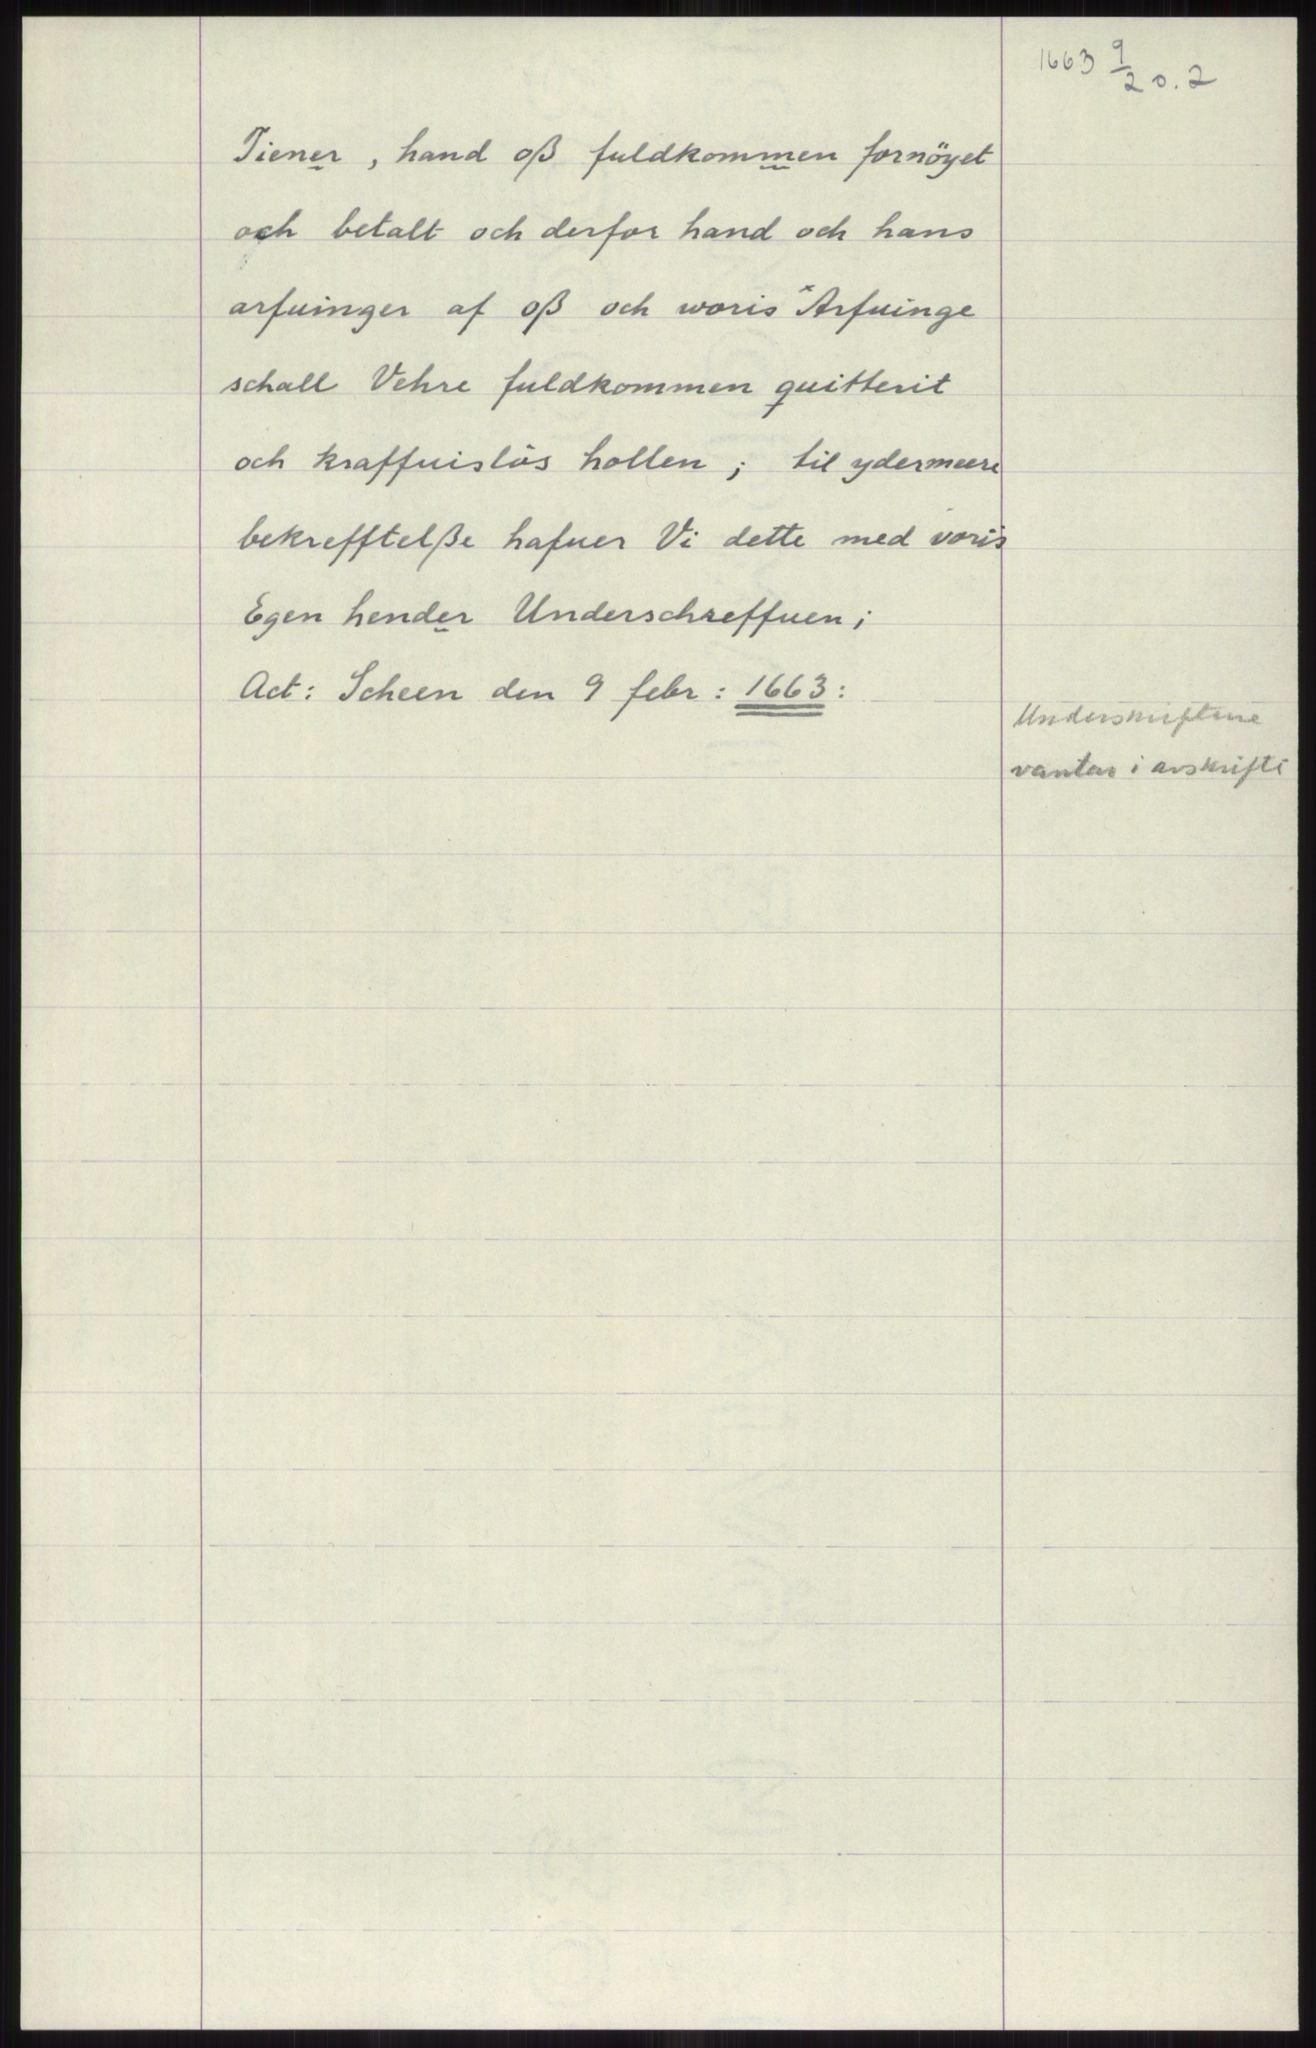 1663 9/2 s. 2
Tiener, hand oß fuldkommen fornöyet
och betalt och derfor hand och hans
arfuinger af oß och woris Arfuinge
schall Vehre fuldkommen quitterit
och kraffuislös hollen; til ydermeere
bekrefftelße hafuer Vi dette med voris
Egen hender Underschreffuen;
Act: Scheen den 9 febr: 1663:
Underskriftene
vantar i avskrifti